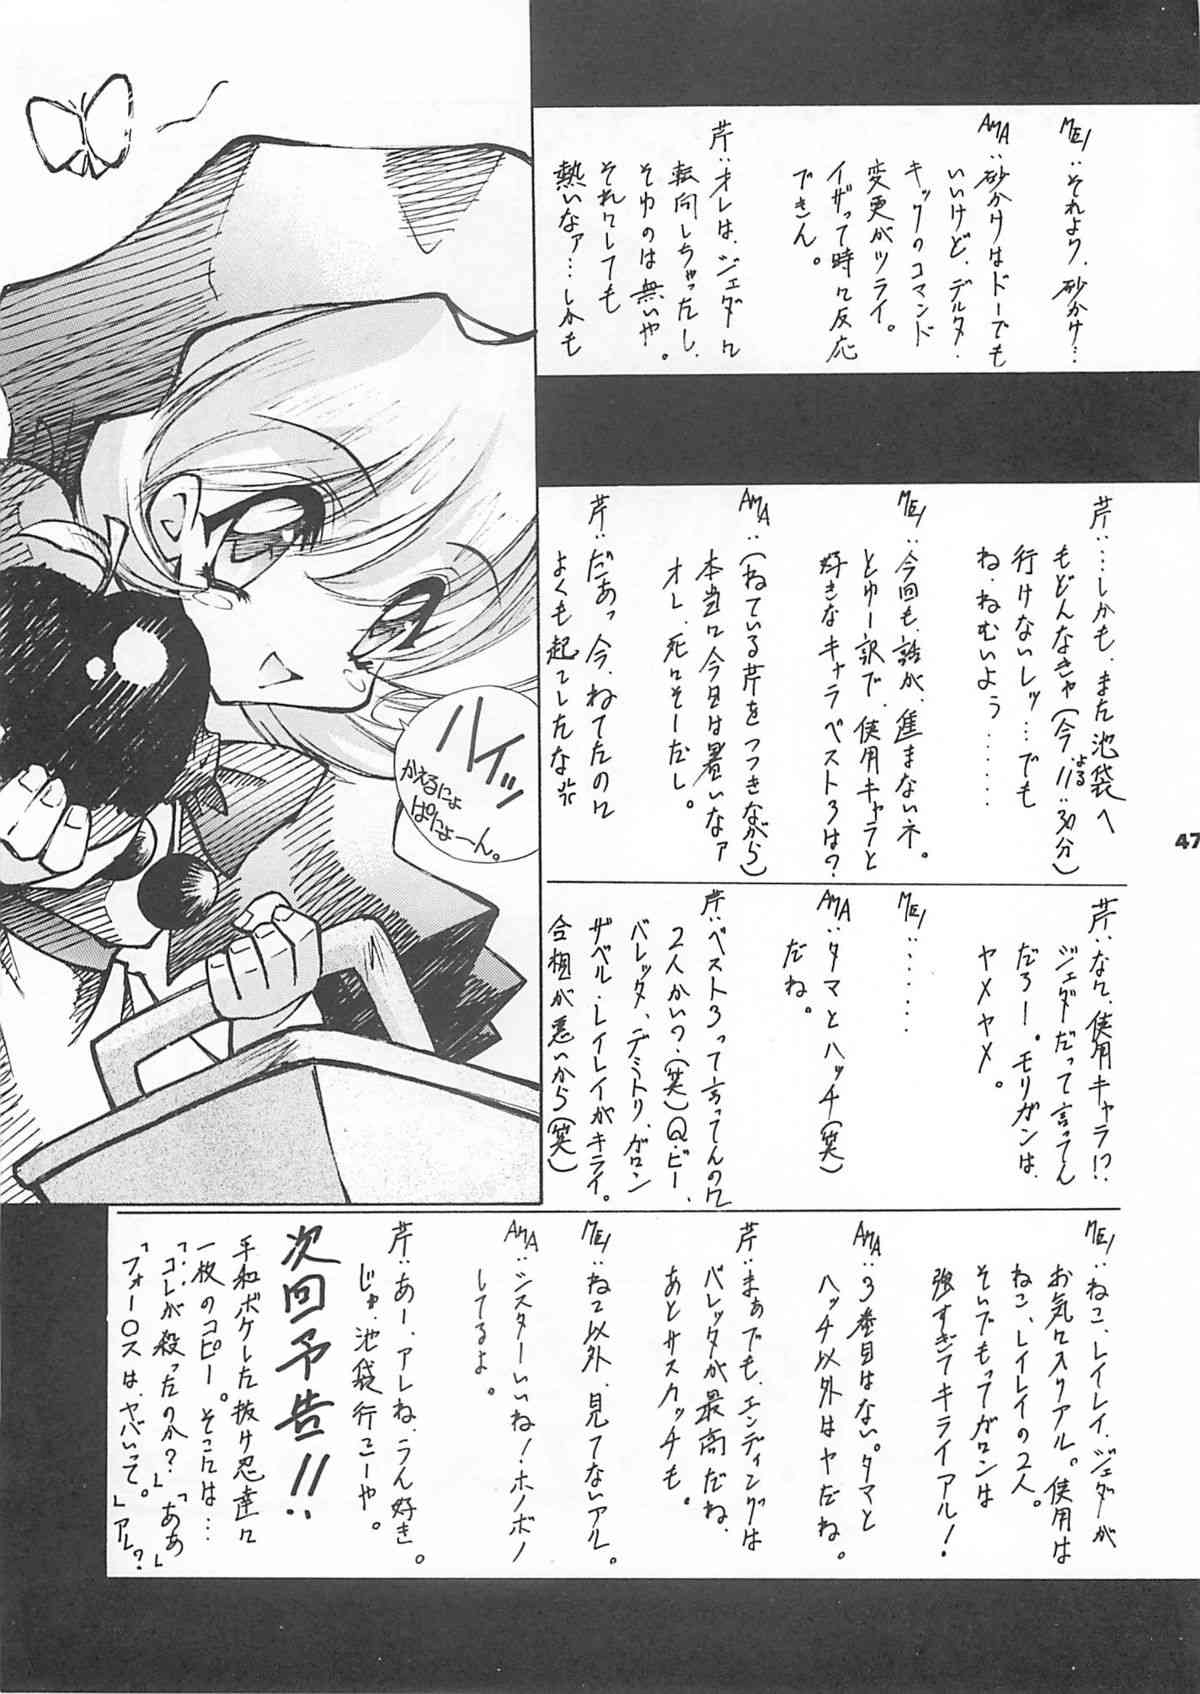 MEI:それより、砂かけ…
AMA:砂かけはドーでも
いいけど、デルタ・
キックのコマンド
変更がツライ。
イザって時に反応
できん。
芹:オレは、ジェダに
転向しちゃったし、
そゆのは無いや。
それにしても
熱いなァ…しかも
芹:…しかも、また池袋へ
もどんなきゃ(今11:30分)
よる
行けないしッ…でも
ね、ねむいよう………
MEI:今回も、話が、進まないネ。
とゆー訳で、使用キャラと
好きなキャラベスト3は?
AMA:(ねている芹をつつきながら)
本当に今日は暑いなァ
オレ、死にそーだし。
芹:だあっ今、ねてたのに
よくも起こしたな
芹:なに、使用キャラ!?
ジェダだって言ってん
だろー。モリガンは、
ヤメヤメ。
MEI:……
AMA:タマとハッチ(笑)
だね。
芹:ベスト3って言ってんのに
2人かい?(笑)Q・ビー、
バレッタ、デミトリ。ガロン
ザベル・レイレイがキライ。
合相が悪いから(笑)
MEI:ねこ、レイレイ、ジェダーが
お気に入りアル。使用は
ねこ、レイレイの2人。
そいでもってガロンは
強すぎてキライアル!
AMA:3番目はない。タマと
ハッチ以外はヤだね。
芹:まぁでも、エンディングは
バレッタが最高だね、
あとサスカッチも。
MEI:ねこ以外、見てないアル。
AMA:シスターいいね!ホノボノ
してるよ。
芹:あー、アレね、うん好き。
じゃ、池袋行こーや。
次回予告!!
平和ボケした抜け忍達に
一枚のコピー。そこには…
「…コレが殺ったのか?」「ああ」
「フォー〇スは、ヤバいって。」アル?
ハイッ
かえるにょ
ぱにょーん。
47